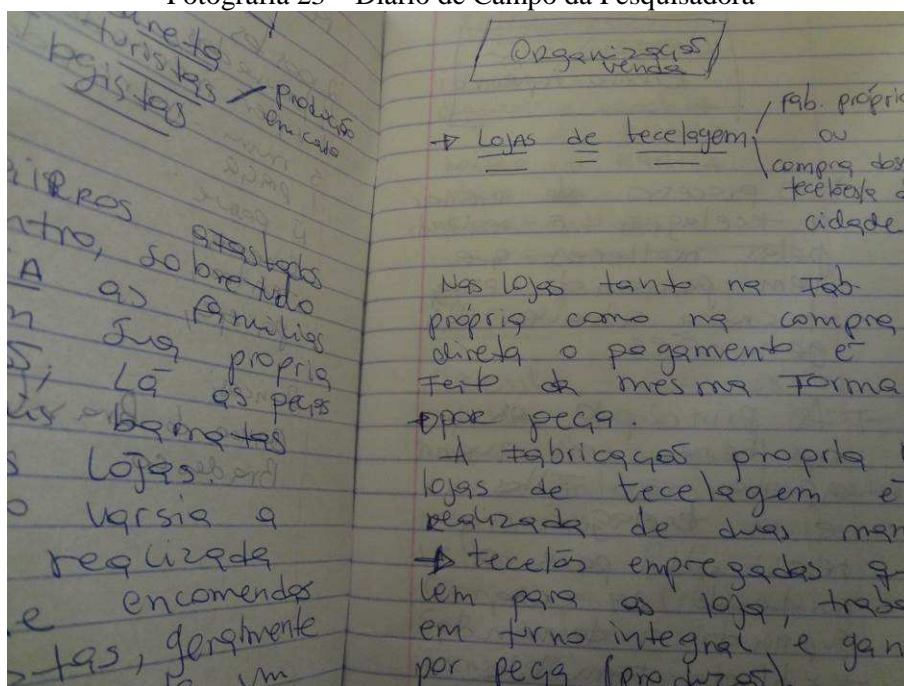 Fotografia 23 – Diário de Campo da Pesquisadora
turistas
produção
em casa
afastados
ntro, sobretudo
A as famílias
sua propria
Lá as peças
baratas
Lojas.
varsia a
realizada
e encomendas
tas, geralmente
um
Organização
venda
→ Lojas de tecelagem
Fab. própria
ou
compra dos
cidade
Nas lojas tanto na Fab.
própria como na compra
direta o pagamento é
Feito da mesma Forma
→ por peça.
A fabricação propria
lojas de tecelagem é
realizada de duas man
→ tecelãs empregadas q
lem para as loja, traba
em turno integral e gan
por peça (produção).